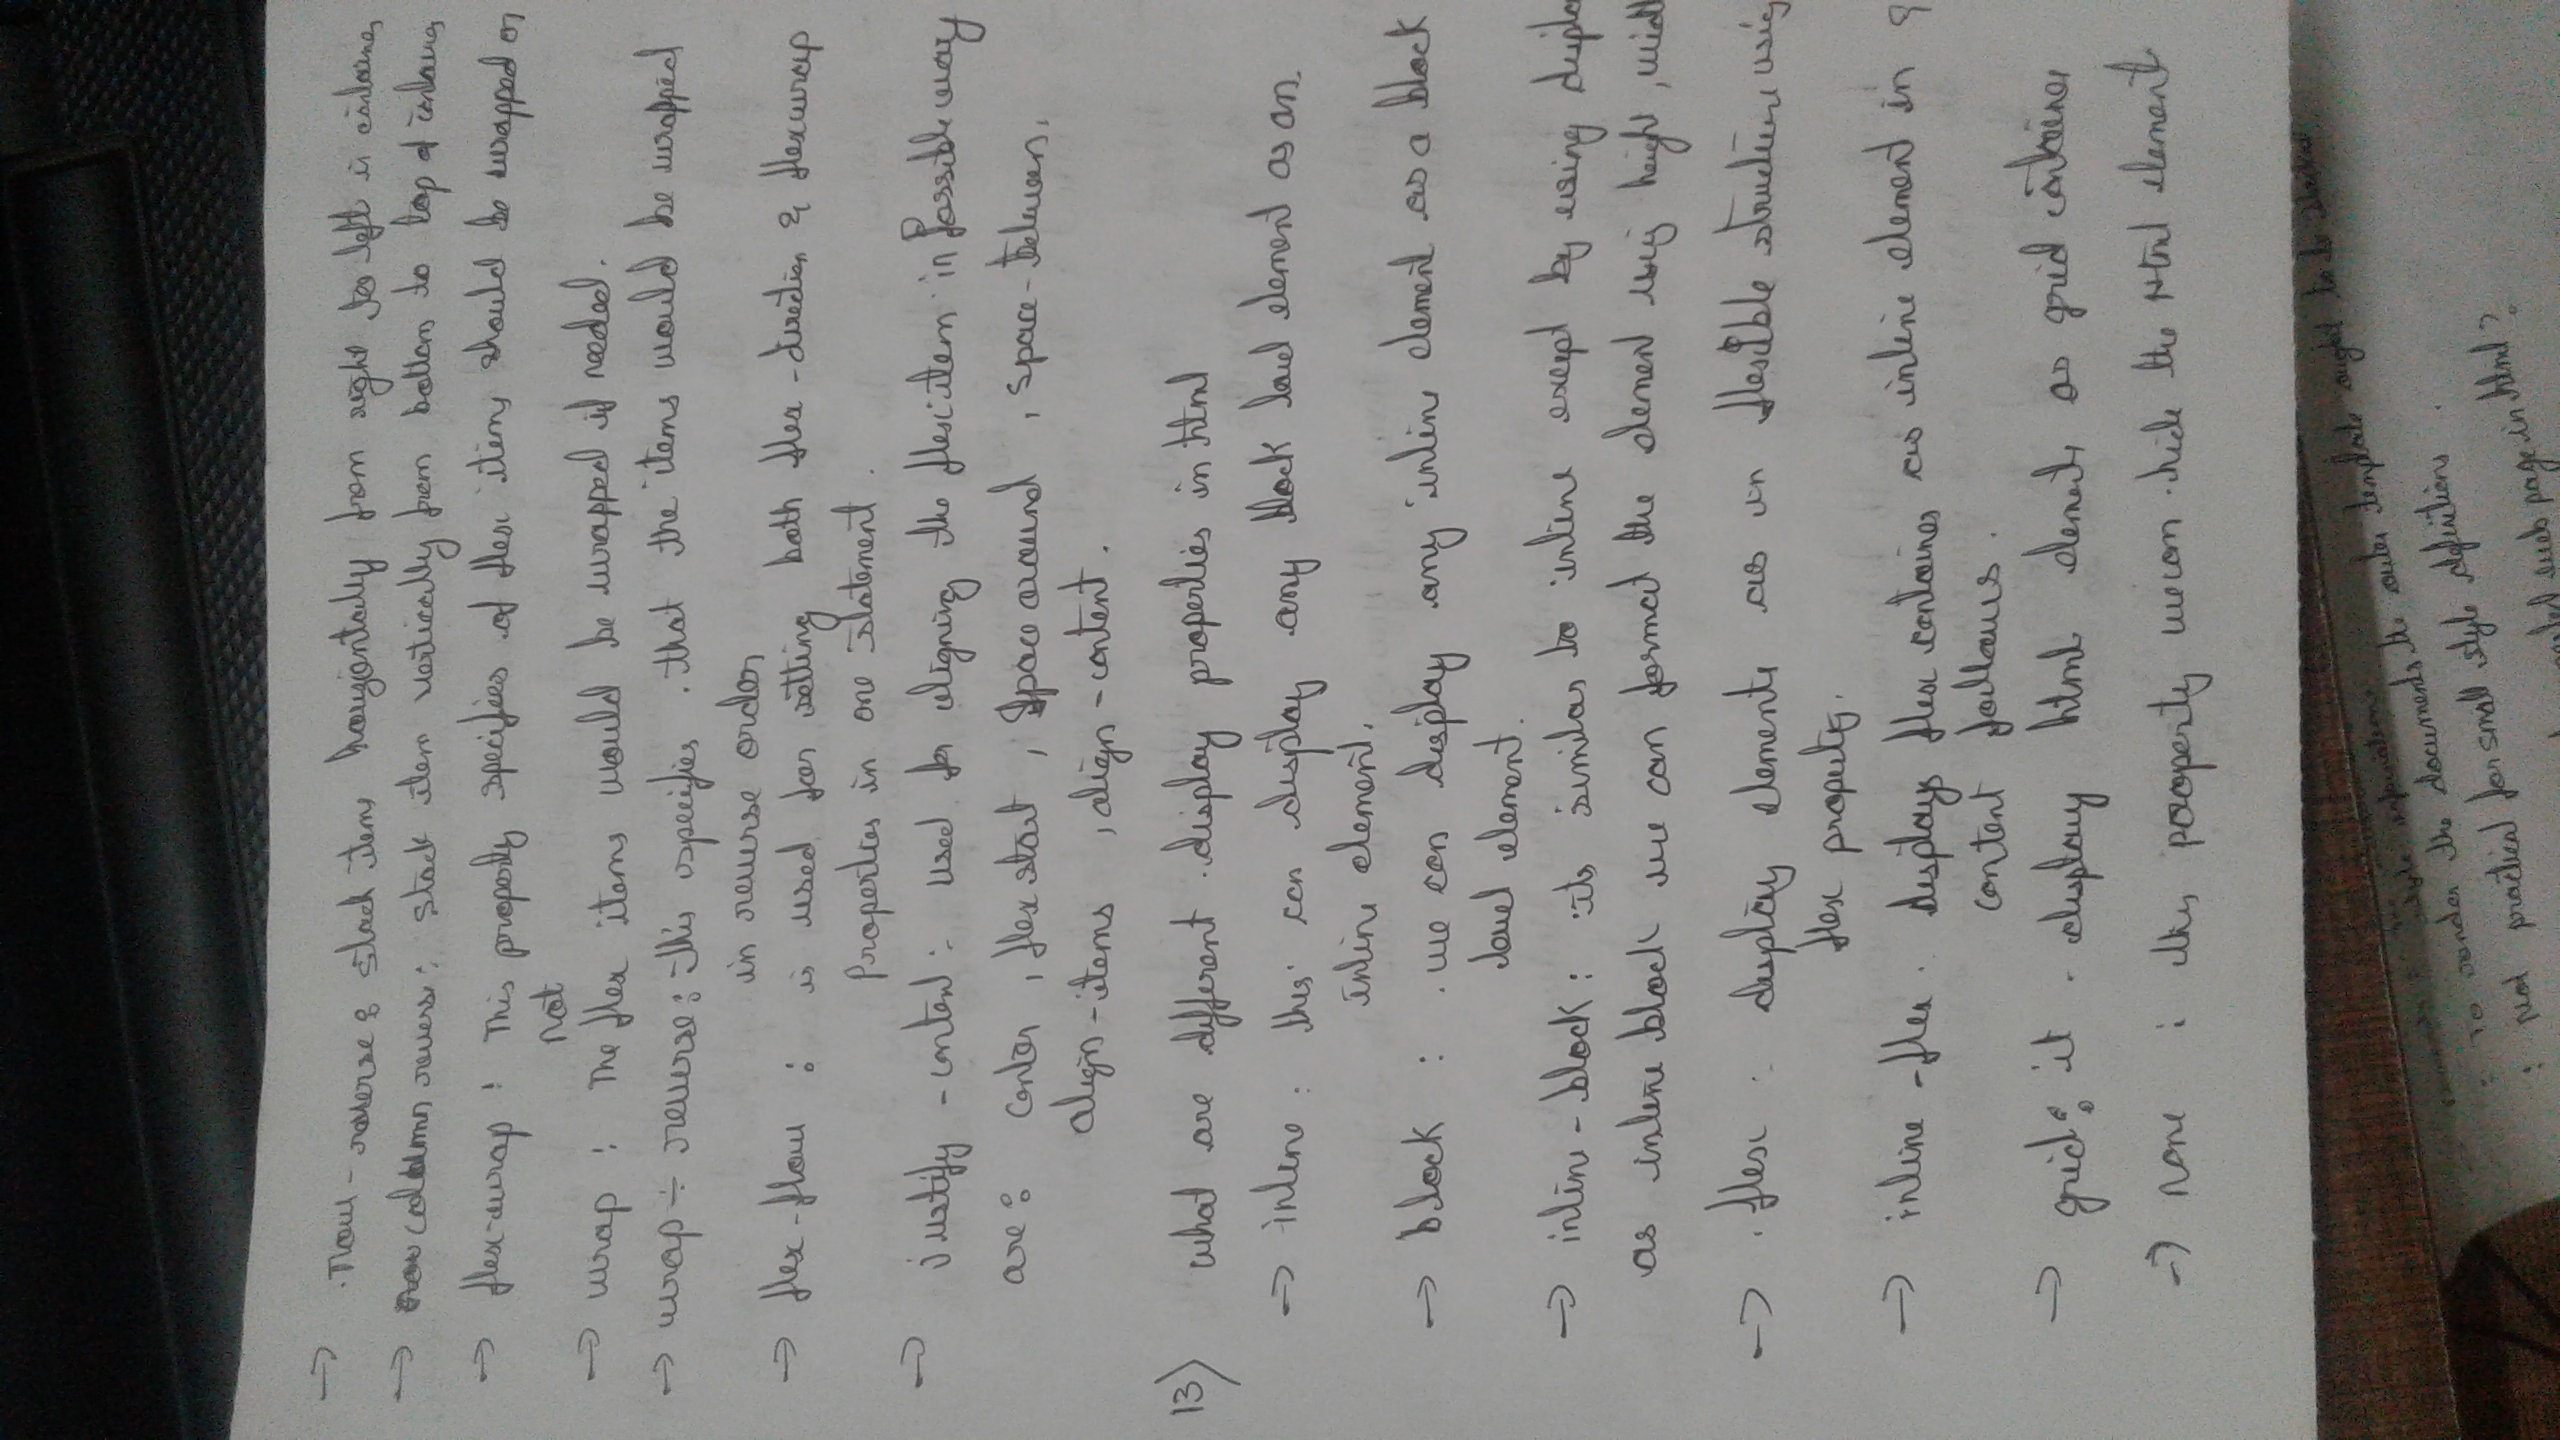 → row-reverse : stack items horizontally from right to left in container
→ column reverse : stack item vertically from bottom to top of container
→ flex-wrap : This property specifies if flex items should be wrapped or
not
→ wrap : The flex items would be wrapped if needed.
→ wrap - reverse : This specifies that the items would be wrapped
in reverse order
→ flex-flow : is used for setting both flex-direction & flexwrap
Properties in one statement.
→ justify-content : used for aligning the flex item in Possible way
are : center , flex start , Space around , space-between,
align-items , align-content.
13) what are different display properties in html
→ inline : this can display any block level element as an
inline element.
→ block : we can display any inline element as a block
level element.
→ inline-block : its similar to inline except by using
as inline block we can format the element using height ,
→ flex : display elements as flexible structure using
flex property.
→ inline-flex displays flex container as inline element in
content follows.
→ grid : it display html elements as grid container
→ none : this property we can hide the Html element
: To render the documents the outer template ought to be
: Not practical for small style definitions
web page in html ?